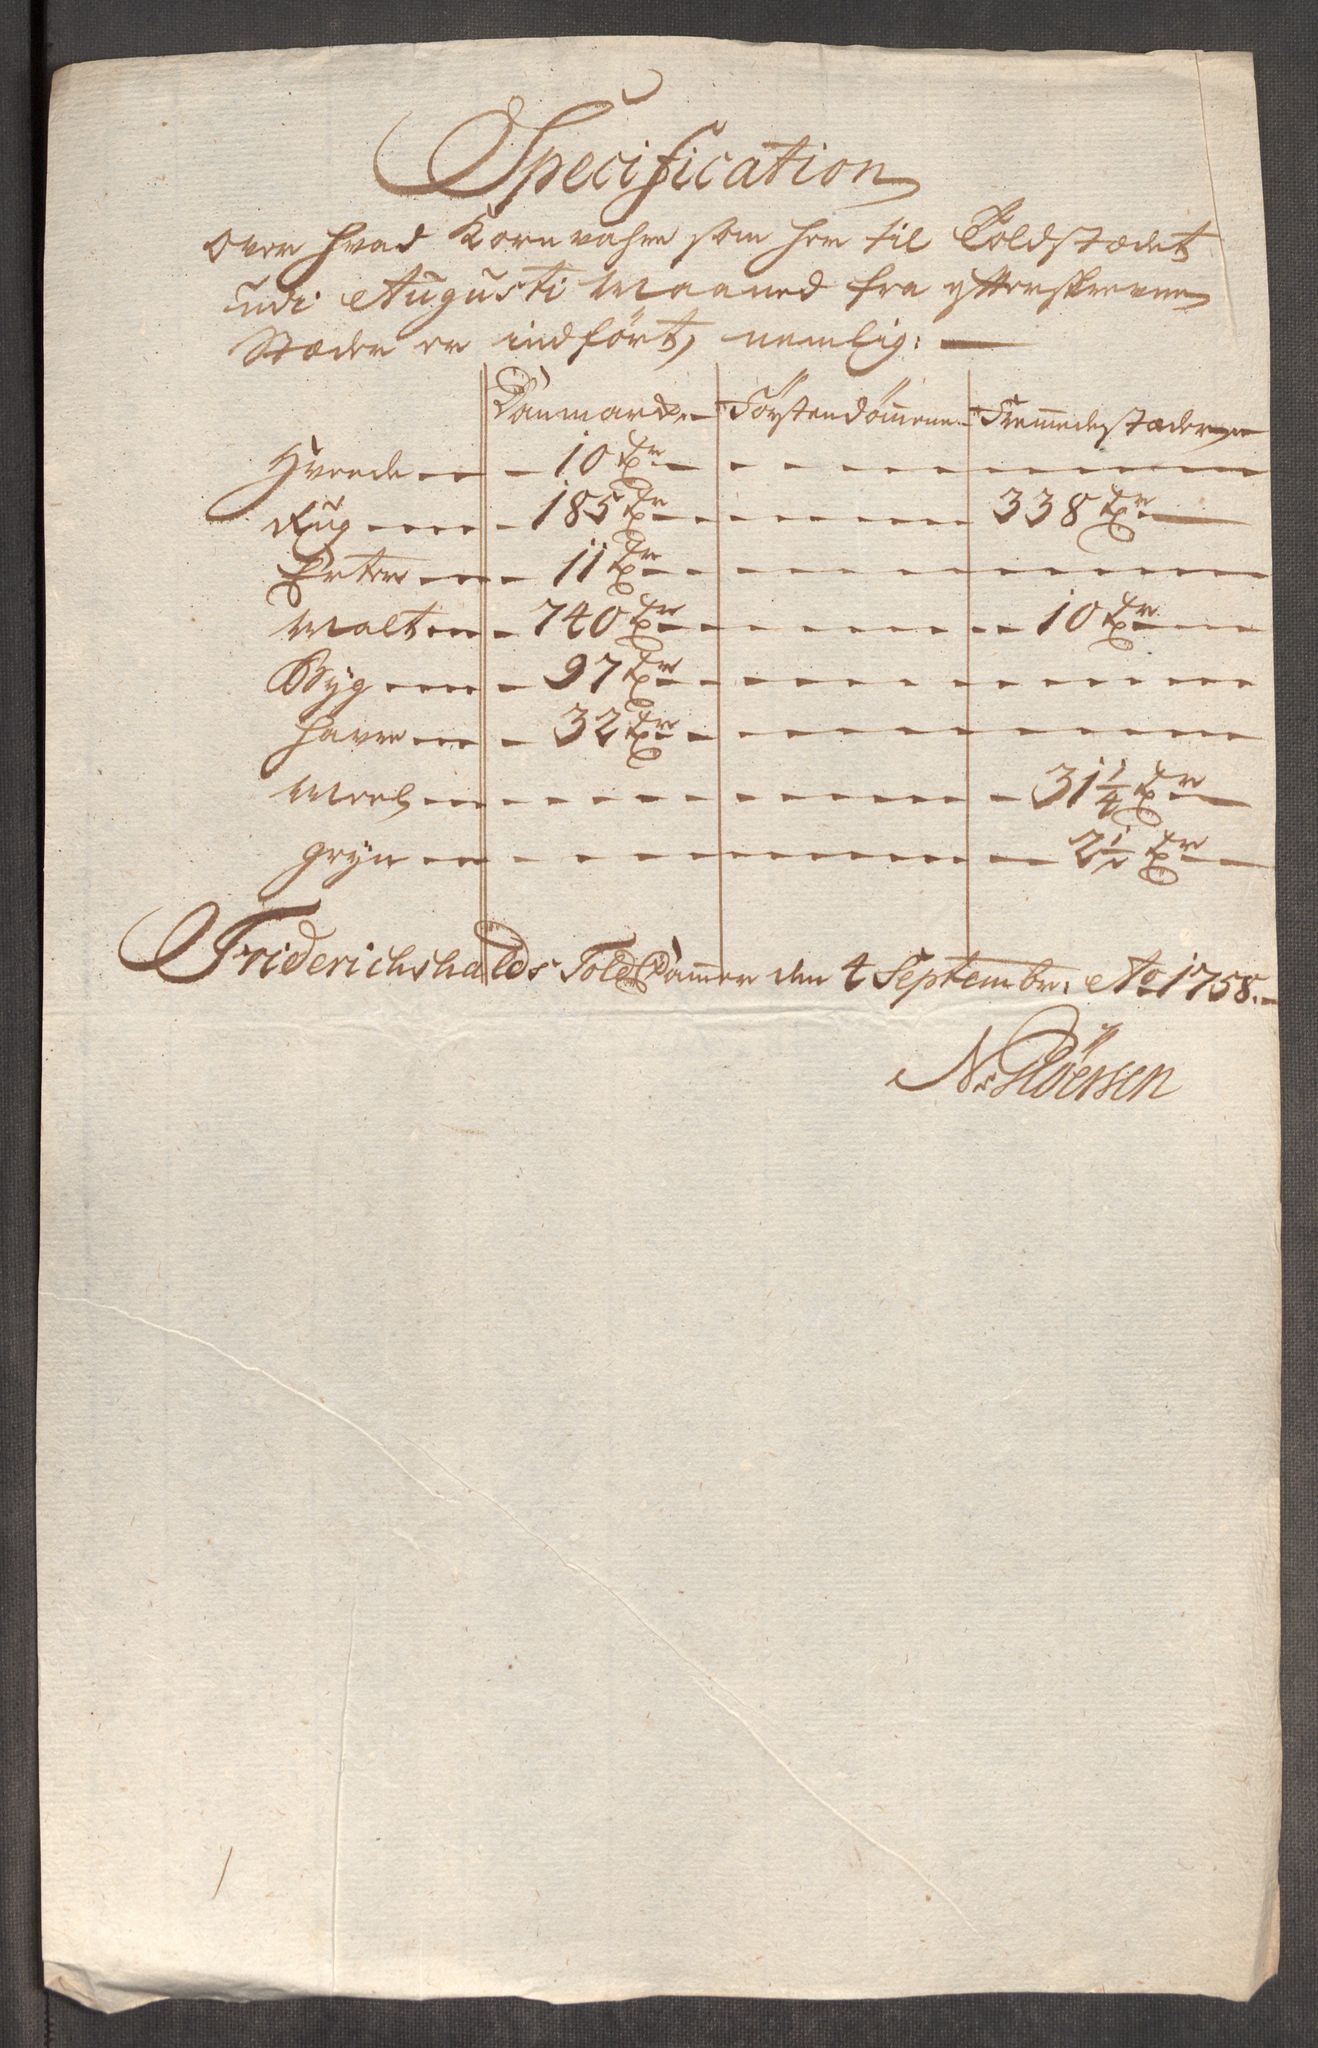 Specification
Over hvad Korn vahre som her til Toldstædet
udi Augusti Maaned fra ÿtterskrevne
Stæder er indført, nemlig:
Danmark Førstendømmene Fremmede stæder
Hveede 10 Tr
Rug 185 Tr 338 Tr
Erter 11 Tr
Malt 740 Tr 10 Tr
Byg 97 Tr
Havre 32 Tr
Meel 31 1/4 Tr
Gryn 2 1/2 Tr
Friderichshalds Told Cammer den 4 Septembr: Ao 1758.